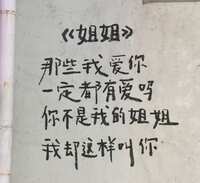 《姐姐》
那些我爱你
一定都有爱吗
你不是我的姐姐
我却这样叫你